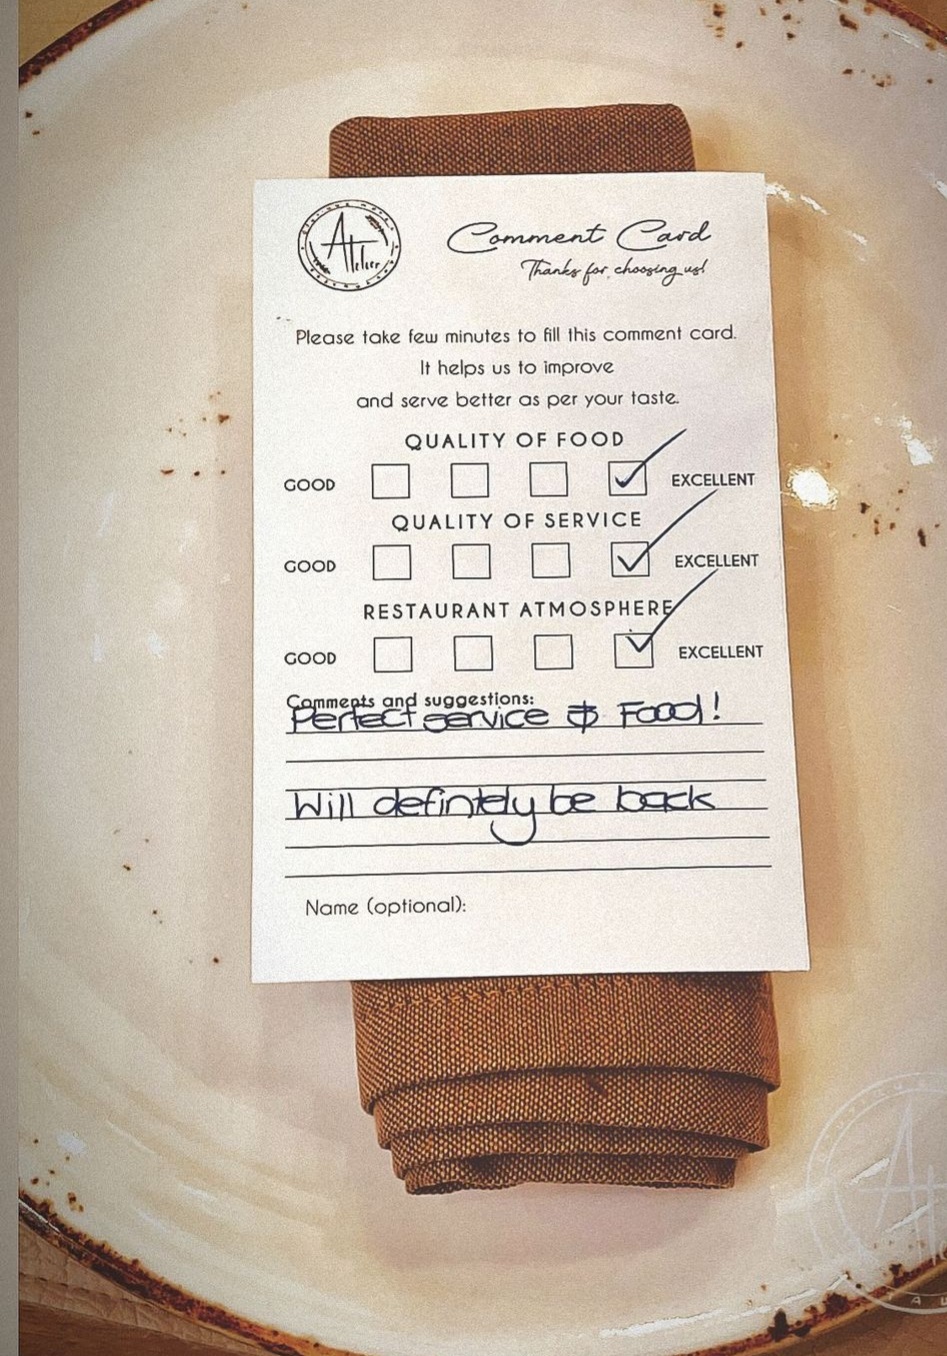 Atelier
Comment Card
Thanks for choosing us!
Please take few minutes to fill this comment card.
It helps us to improve
and serve better as per your taste.
QUALITY OF FOOD
GOOD EXCELLENT
QUALITY OF SERVICE
GOOD EXCELLENT
RESTAURANT ATMOSPHERE
GOOD EXCELLENT
Comments and suggestions:
Perfect service & Food!
Will defintely be back
Name (optional):